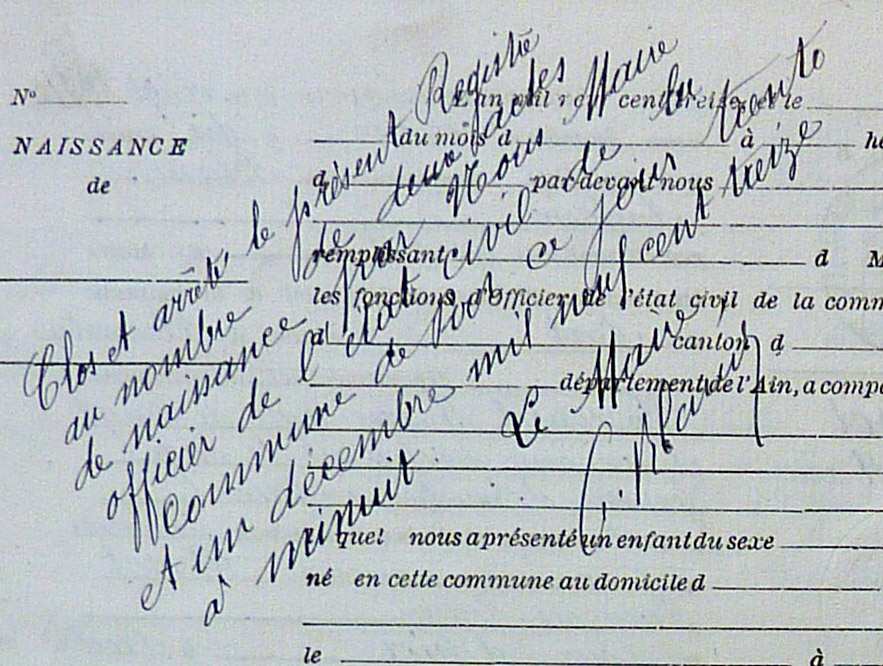 N°
NAISSANCE
de
L'an mil neuf cent treize et le
du mois d à he
par devant nous
remplissant d M
les fonctions d'Officier de l'état civil de la comm
d canton d
département de l'Ain, a compa
quel nous a présenté un enfant du sexe
né en cette commune au domicile d
le à
Clos et arrêté, le présent Registre
au nombre de deux actes
de naissance par Nous Maire
officier de l'état civil de la
Commune de ce jour trente
et un décembre mil neuf cent treize
à minuit. Le Maire